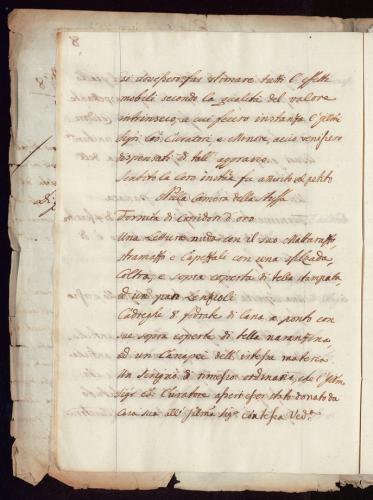 8
si dovessero far stimare tutti l'effetti
mobili secondo la qualità del valore
intrinseco, a cui fecero instanza l'Illmi
Sigri Con: Curatori, e Minore, acciò venissero
dispensati di tall' aggravio
Sentito la loro instza fu admesso il petito
Nella Camera della Stessa
Dormita di Corridori d'oro
Una Lettiera nuda con il suo Mattarazzo
Stramazzo e Capezzali con una
Coltra, e sopra coperta di tella stampata,
ed un paro Lenzioli
Cadreghe di fronte di Cana a ponti con
sue sopra coperte di tella naranzina
ed un Canapei dell' istessa materia
Un Scrigno di rimesso ordinario, che l'Illmo
Sigr Con: Curatore asserì esser stato donato da
Casa sua all' Illma Sigra Contessa Veda